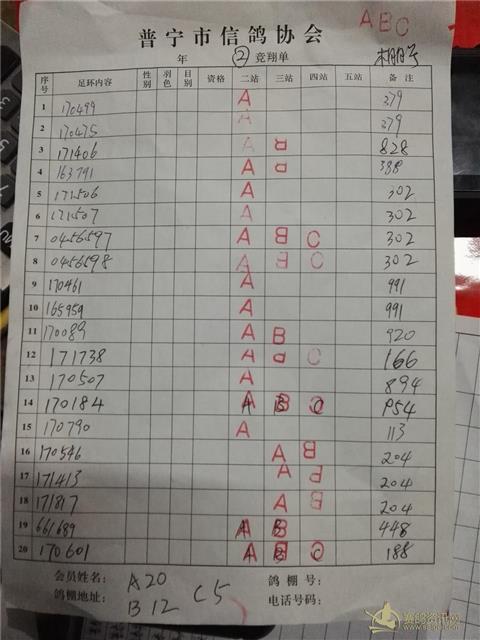 ABC
普宁市信鸽协会
年 ② 竞翔单 棚号
序号 足环内容 性别 羽色 目别 资格 二站 三站 四站 五站 备注
1 170499 A 379
2 170475 A 379
3 171406 A B 828
4 163791 A B 388
5 171506 A 302
6 171507 A 302
7 0456597 A B C 302
8 0456598 A B C 302
9 170461 A 991
10 165959 A 991
11 170089 A B 920
12 171738 A B C 166
13 170507 A 894
14 170184 A B C P54
15 170790 A 113
16 170546 A B 204
17 171413 A B 204
18 171817 A B 204
19 661689 A B 448
20 170601 A B C 188
会员姓名: A20 鸽棚号:
鸽棚地址: B12 C5 电话号码:
赛鸽资讯网